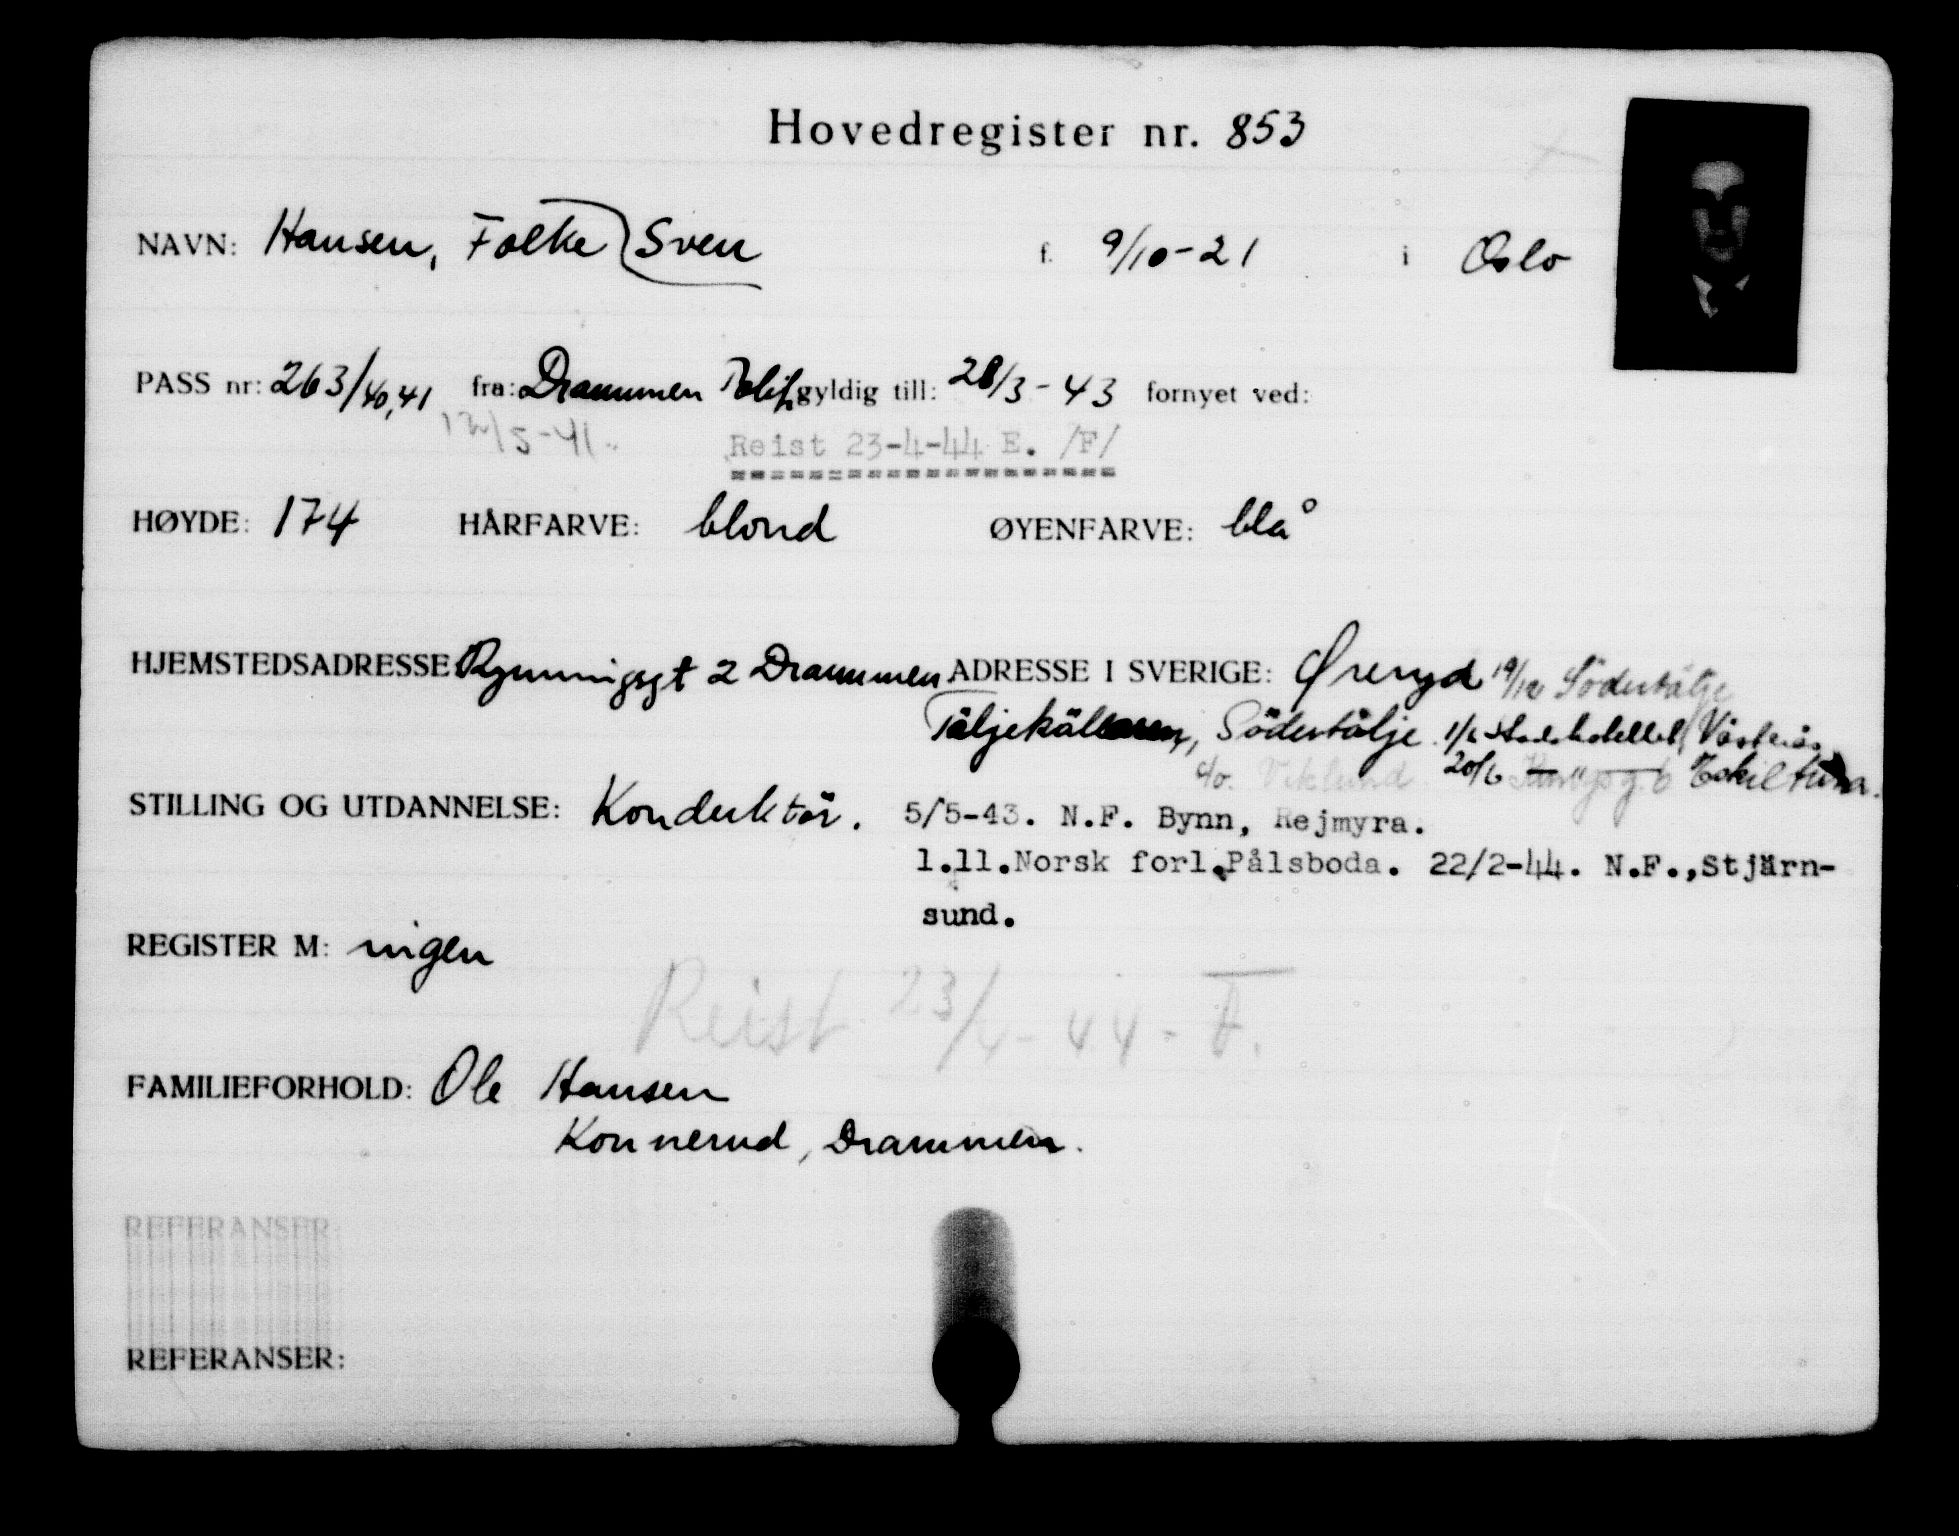 Hovedregister nr. 853
NAVN: Hansen, Folke Sven f. 9/10-21 i Oslo
PASS nr: 263/40,41 fra: Drammen gyldig till: 28/3-43 fornyet ved:
/5-41. Reist 23-4-44 E. /F/
HØYDE: 174 HÅRFARVE: blond ØYENFARVE: blå
HJEMSTEDSADRESSE: 2 Drammen ADRESSE I SVERIGE: Øreryd 19/12 Södertälje
Täljekällaren, Södertälje. 1/6 Stadshotellet, Västerås
c/o. Viklund 20/6 Eskiltuna.
STILLING OG UTDANNELSE: Konduktör. 5/5-43. N.F. Bynn, Rejmyra.
1.11.Norsk forl.Pålsboda. 22/2-44. N.F.,Stjärn-
sund.
REGISTER M: ingen
Reist 23/4-44-F.
FAMILIEFORHOLD: Ole Hansen
Konnerud, Drammen.
REFERANSER:
REFERANSER: